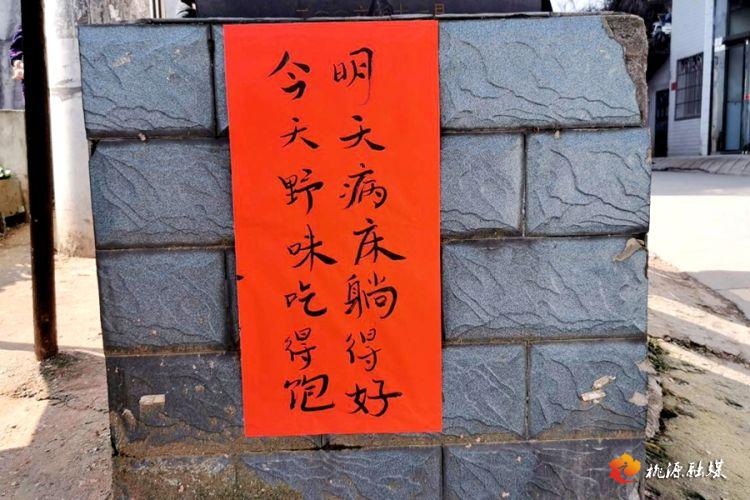 明天病床躺得好
今天野味吃得饱
桃源融媒